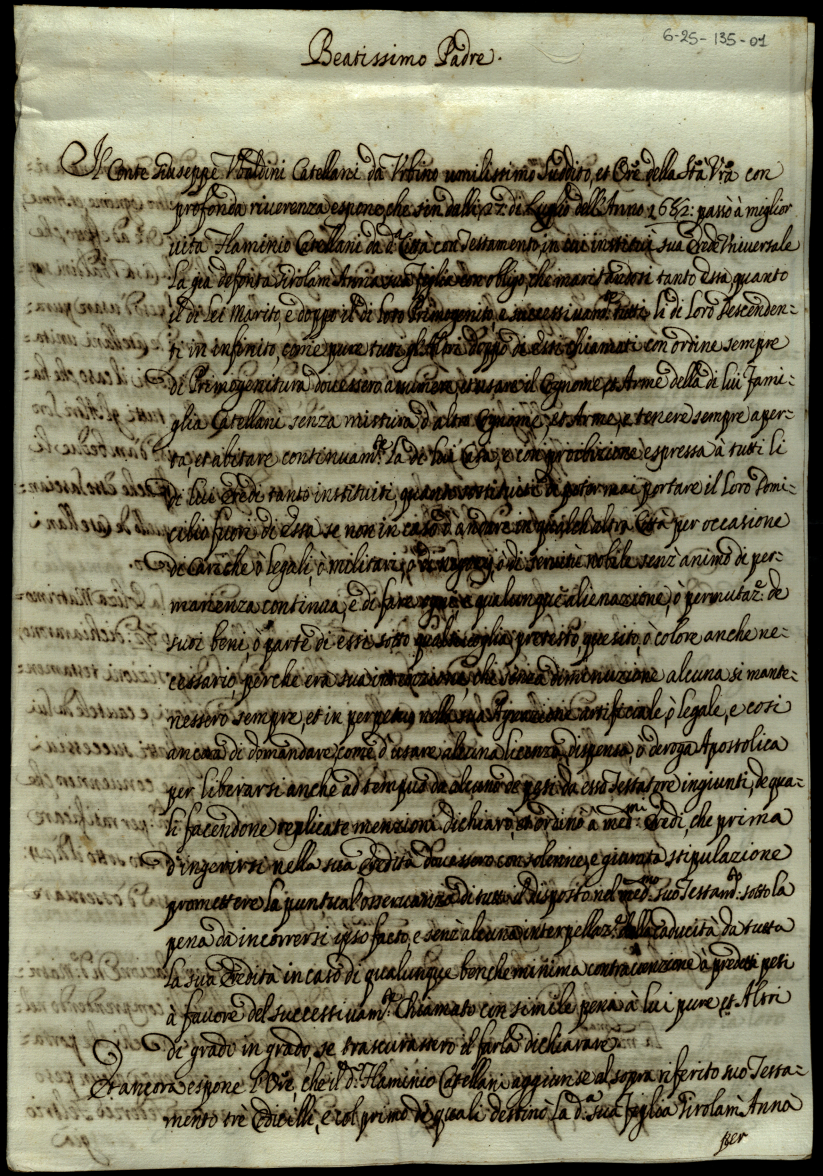 6-25-135-01
Beatissimo Padre.
Il Conte Giuseppe Vbaldini Catellani da Vrbino umilissimo Suddito, et Ore della Stà Vrã con
profonda riverenza espone, che sin dalli 22 di Luglio dell'Anno 1682: passò à miglior
vita Flaminio Catellani da dã Città con Testamento, in cui instituì sua Erede Universale
la già defonta Girolam'Anna sua figlia con obligo, che maritandosi tanto Essa quanto
il di Lei Marito, e doppo il di loro Primogenito, e successivamte tutti li di Loro Descenden=
ti in infinito, come pure tutti gl'Altri doppo di essi chiamati con ordine sempre
di Primogenitura dovessero assumere, et usare il Cognome, et Arme della di lui Fami=
glia Catellani senza mistura d'altro Cognome, et Arme, e tenere sempre aper=
ta, et abitare continuamte la di lui Casa, e con proibizione espressa à tutti li
di lui Eredi tanto instituiti, quanto sostituiti di poter mai portare il Loro Domi=
cilio fuori di essa se non in caso d'andare in qualch'altra Città per occasione
di Cariche ò legali, ò militari, ò di ò di servitù nobile senz'animo di per=
manenza continua, e di fare ogni, e qualunque alienazione, ò permutaze de
suoi beni, ò parte di essi sotto qualsivoglia pretesto, quesito, ò colore anche ne=
cessario, perche era sua intenzione, che senza diminuzione alcuna si mante=
nessero sempre, et in perpetuo nella sua Agnazione artificiale, ò legale, e così
ancora di domandare, come d'usare alcuna licenza, dispensa, ò deroga Apostolica
per liberarsi anche ad tempus da alcuno de pesi da esso Testatore ingiunti, de qua=
li facendone replicate menzioni dichiarò, et ordinò à medmi Eredi, che prima
d'ingerirsi nella sua Eredità dovessero con solenne, e giurata stipulazione
promettere la puntual osservanza di tutto il disposto nel medmo suo Testamto sotto la
pena da incorrersi ipso facto, e senz'alcuna interpellaze della caducità da tutta
la sua Eredità in caso di qualunque benche minima contravenzione à predetti pesi
à favore del successivamte Chiamato con simile pena à lui pure, et Altri
di grado in grado, se trascurassero il farla dichiarare.
Et ancora espone l'Ore, che il dº Flaminio Catellani aggiunse al sopra riferito suo Testa=
mento trè Codicilli, e col primo de quali destinò la dã sua figlia Girolam'Anna
per